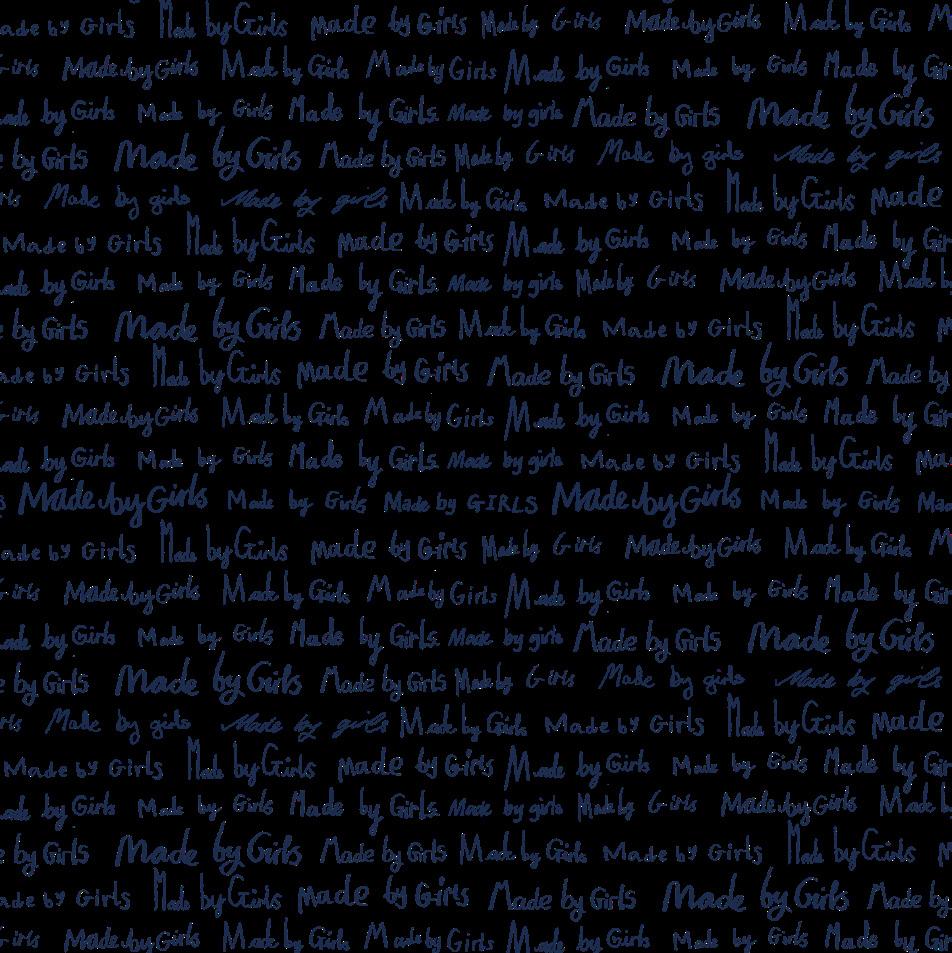 ade by Girls Made by Girls made by Girls Made by Girls Made by Girls Made by Girls M
Girls Made by Girls Made by Girls Made by Girls Made by Girls Made by Girls Made by Gir
ade by Girls Made by Girls Made by Girls Made by girls Made by Girls Made by Girls
e by Girls Made by Girls Made by Girls Made by Girls Made by girls Made by girls
rls Made by girls Made by girls Made by Girls Made by Girls Made by Girls made
Made by Girls Made by Girls made by Girls Made by Girls Made by Girls Made by Gir
ade by Girls Made by Girls Made by Girls Made by girls Made by Girls Made by Girls Made b
e by Girls Made by Girls Made by Girls Made by Girls Made by Girls Made by Girls m
ade by Girls Made by Girls made by Girls Made by Girls Made by Girls Made by
Girls Made by Girls Made by Girls Made by Girls Made by Girls Made by Girls Made by Gir
ade by Girls Made by Girls Made by Girls Made by girls Made by Girls Made by Girls ma
s Made by Girls Made by Girls Made by GIRLS Made by Girls Made by Girls Ma
ade by Girls Made by Girls made by Girls Made by Girls Made by Girls Made by Girls M
Girls Made by Girls Made by Girls Made by Girls Made by Girls Made by Girls Made by Gir
ade by Girls Made by Girls Made by Girls Made by girls Made by Girls Made by Girls
e by Girls Made by Girls Made by Girls Made by Girls Made by girls Made by girls
rls Made by girls Made by girls Made by Girls Made by Girls Made by Girls made
Made by Girls Made by Girls made by Girls Made by Girls Made by Girls Made by Gir
ade by Girls Made by Girls Made by Girls Made by girls Made by Girls Made by Girls Made b
e by Girls Made by Girls Made by Girls Made by Girls Made by Girls Made by Girls m
ade by Girls Made by Girls made by Girls Made by Girls Made by Girls Made by
Girls Made by Girls Made by Girls Made by Girls Made by Girls Made by Girls Made by Gir